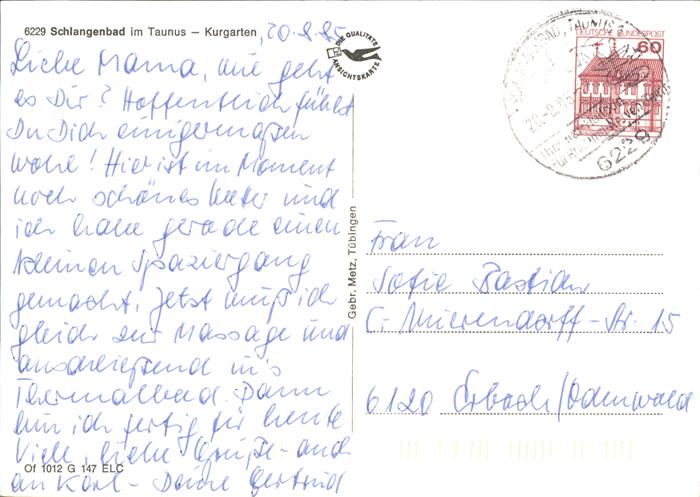 6229 Schlangenbad im Taunus – Kurgarten, 20.8.85
Liebe Mama, wie geht
es Dir? Hoffentlich fühlst
Du Dich einigermaßen
wohl! Hier ist im Moment
noch schönes Wetter und
ich habe gerade einen
kleinen Spaziergang
gemacht. Jetzt muß ich
gleich zur Massage und
anschließend in's
Thermalbad. Dann
bin ich fertig für heute
Viele, liebe Grüße – auch
an Karl – Deine Gertrud
Of 1012 G 147 ELC
DIE QUALITÄTS
ANSICHTSKARTE
Gebr. Metz, Tübingen
DEUTSCHE BUNDESPOST
60
TAUNUS
6229
Frau
Sofie Bastian
C.-Mierendorff-Str. 15
6120 Erbach/Odenwald